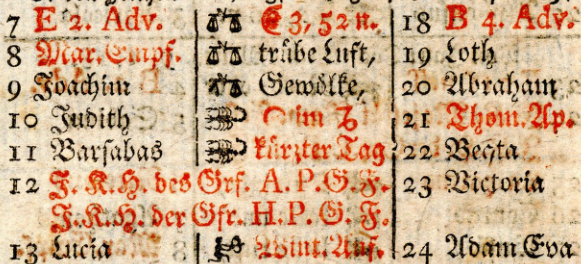 7 E 2. Adv. ♎ ☾ 3, 52 n. 18 B 4. Adv.
8 Mar. Empf. ♎ trübe Luft, 19 Loth
9 Joachim ♎ Gewölke, 20 Abraham
10 Judith ♏ ☉ im ♑ 21 Thom. Ap.
11 Barsabas ♏ kürzter Tag 22 Beata
12 J. K. H. des Grf. A. P. G. F. 23 Victoria
J. K. H. der Gfr. H. P. G. F.
13 Lucia Wint. Anf. 24 Adam. Eva